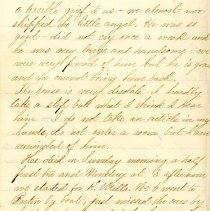 a terrible grief to us - we almost wor-
shipped the little angel. He was so
good - did not cry once a week and
he was very large and handsome - we
were very proud of him but he is gone
and we cannot bring him back.
The house is very desolate I hardly
take a step but what I think I hear
him - I do not take an article in my
hands, do not enter a room but I am
reminded of him.
He died on Tuesday morning a half
past two and Monday at 5 afternoon
we started for K. Mills. We went to
Boston by boat, just missed the cars by